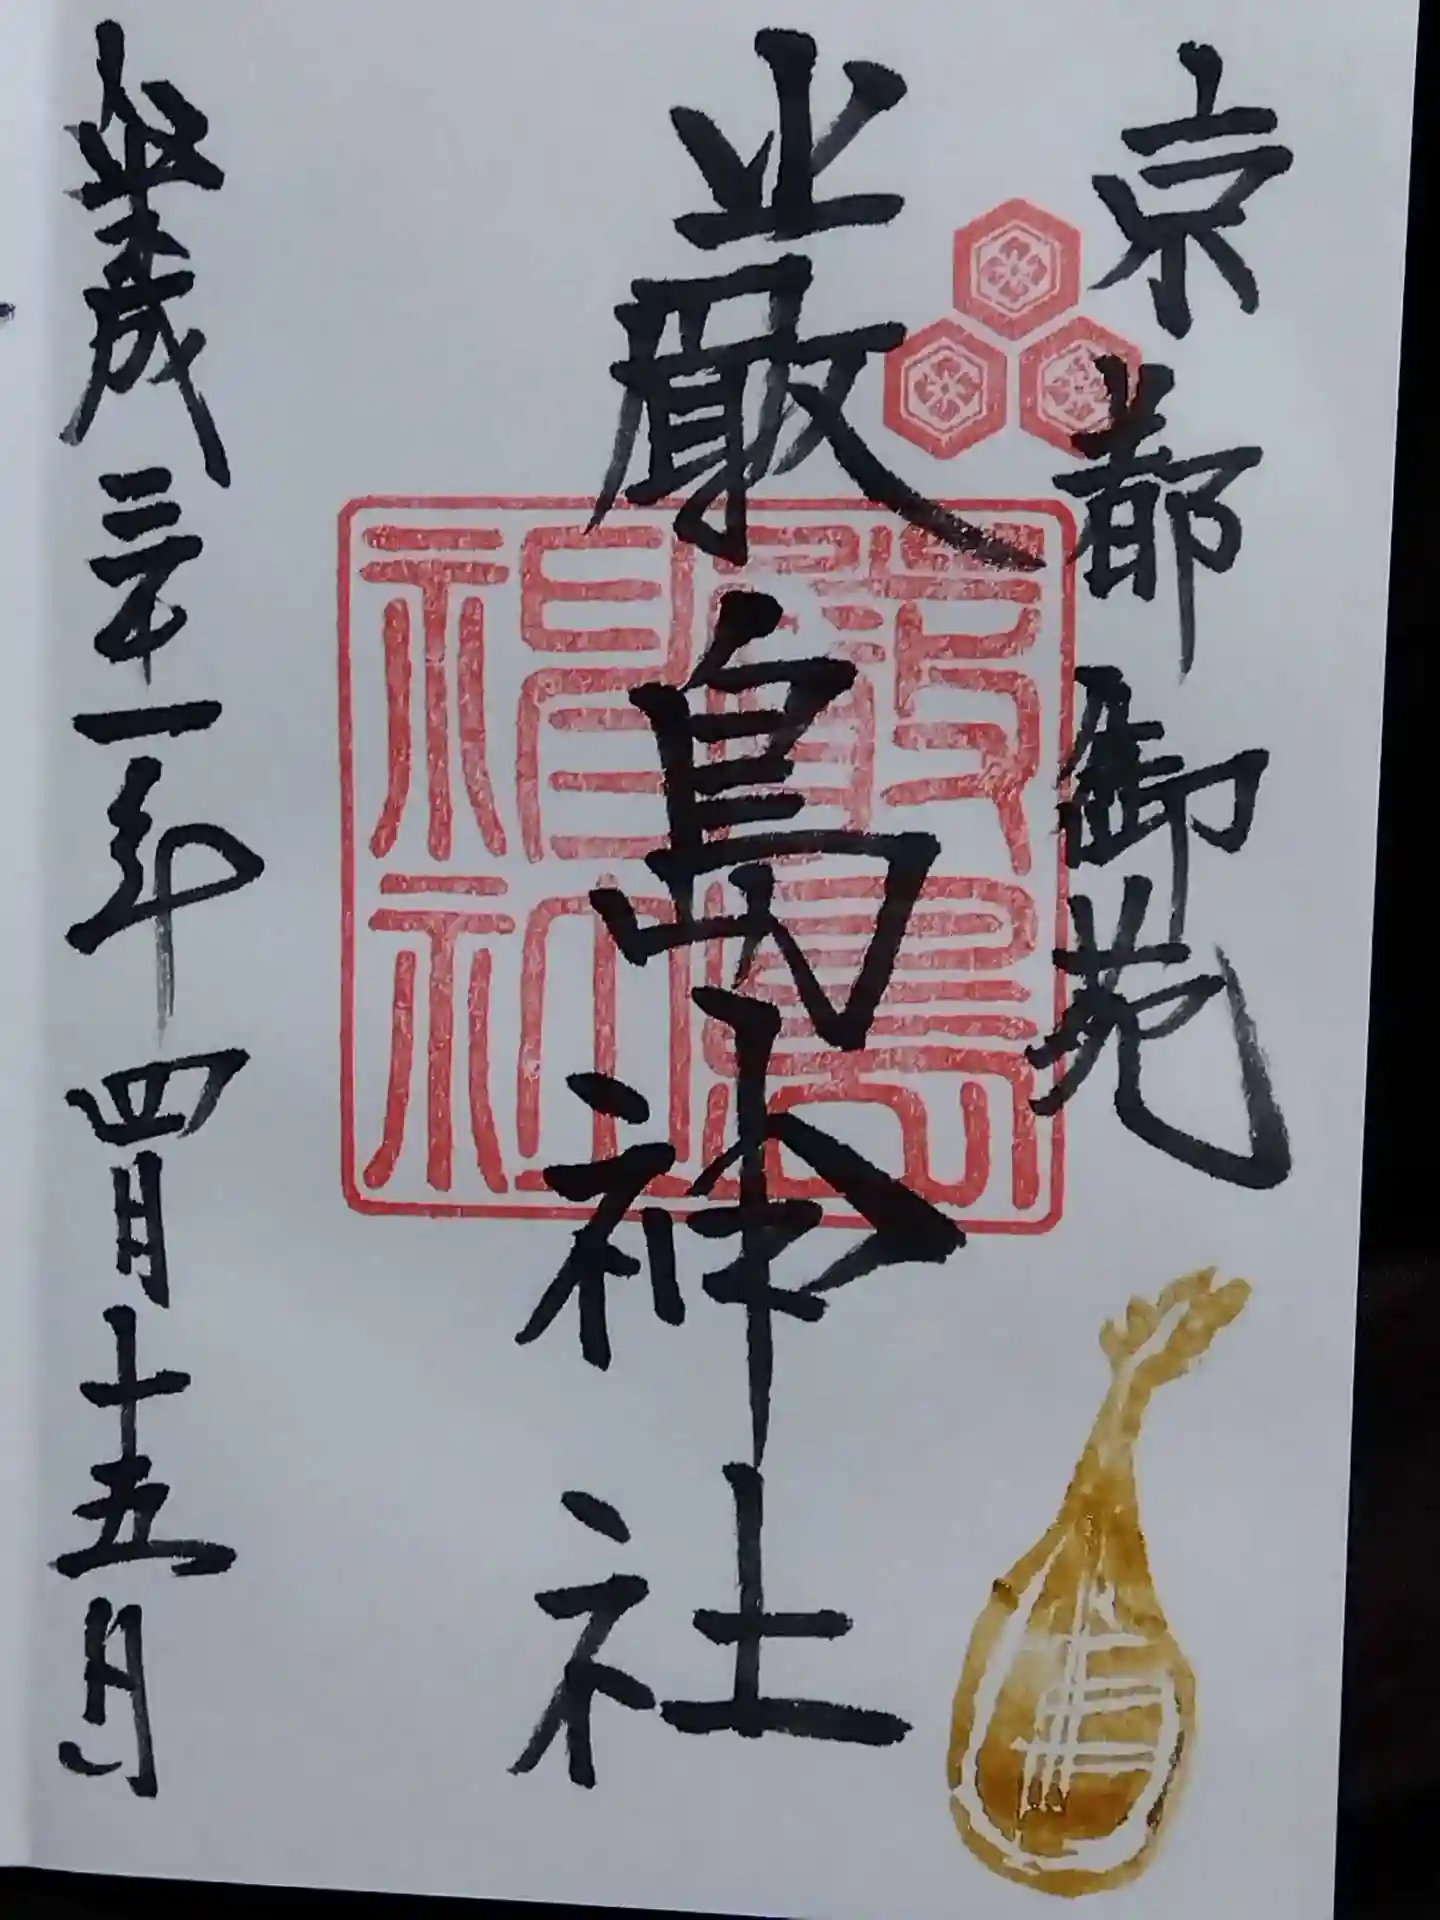 京都御苑
厳島神社
平成三十一年四月十五月
嚴島神社